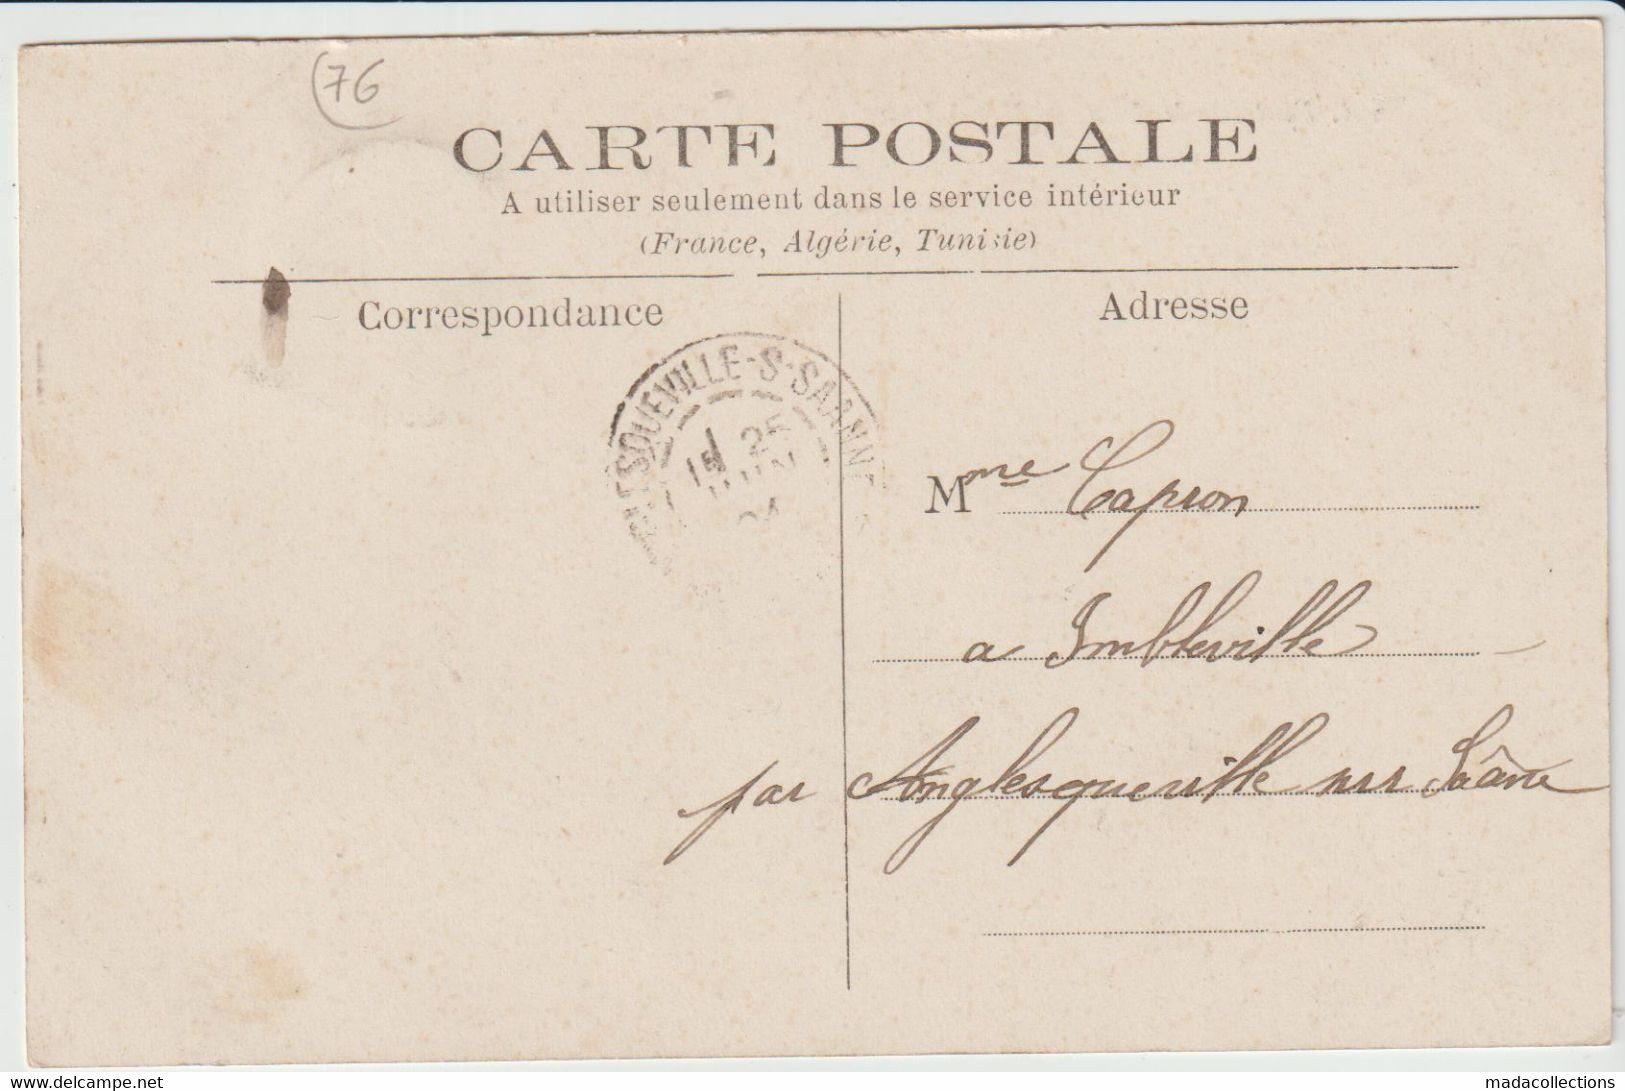 (76
CARTE POSTALE
A utiliser seulement dans le service intérieur
(France, Algérie, Tunisie)
Correspondance
Adresse
ESQUEVILLE-S-SAANNE
15 25
JUIN
04
Mme Capron
a Imbleville
par Anglesqueville sur Saâne
www.delcampe.net
madacollections